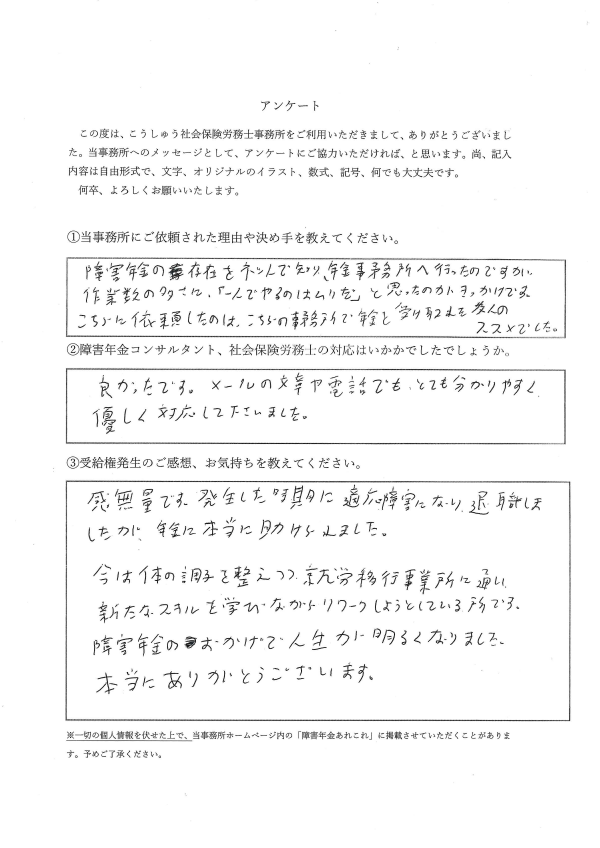 アンケート
この度は、こうしゅう社会保険労務士事務所をご利用いただきまして、ありがとうございまし
た。当事務所へのメッセージとして、アンケートにご協力いただければ、と思います。尚、記入
内容は自由形式で、文字、オリジナルのイラスト、数式、記号、何でも大丈夫です。
何卒、よろしくお願いいたします。
①当事務所にご依頼された理由や決め手を教えてください。
障害年金の存在をネットで知り、年金事務所へ行ったのですが、
作業数の多さに、「一人でやるのはムリだ」と思ったのが、きっかけです。
こちらに依頼したのは、こちらの事務所で年金を受け取れた友人の
ススメでした。
②障害年金コンサルタント、社会保険労務士の対応はいかかでしたでしょうか。
良かったです。メールの文章や電話でも、とても分かりやすく、
優しく対応して下さいました。
③受給権発生のご感想、お気持ちを教えてください。
感無量です。発生した時期に適応障害になり、退職しま
したが、年金に本当に助けられました。
今は体の調子を整えつつ、就労移行事業所に通い、
新たなスキルを学びながらリワークしようとしている所です。
障害年金のおかげで人生が明るくなりました。
本当にありがとうございます。
※一切の個人情報を伏せた上で、当事務所ホームページ内の「障害年金あれこれ」に掲載させていただくことがありま
す。予めご了承ください。